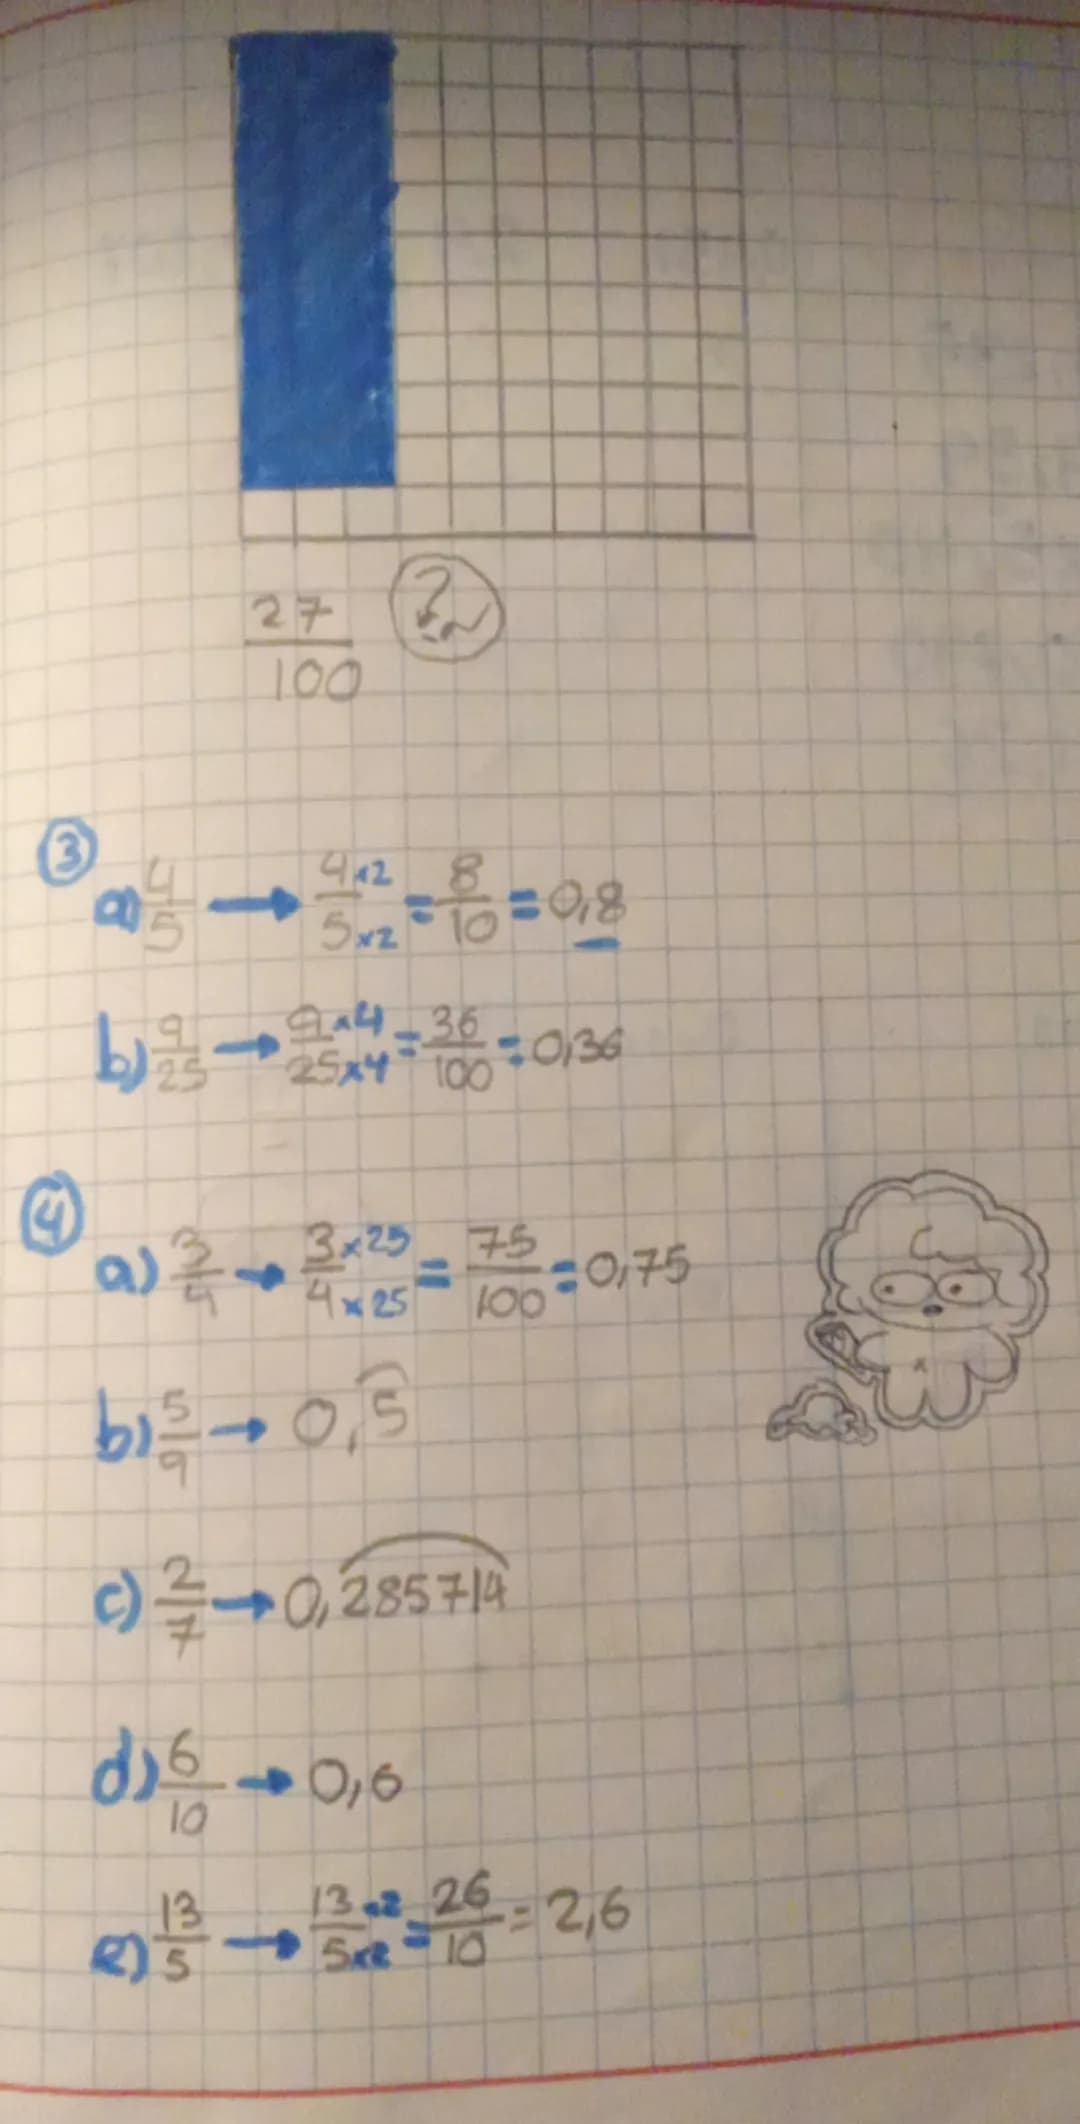 27/100 ?
3
a) 4/5 → 4×2/5×2 = 8/10 = 0,8
b) 9/25 → 9×4/25×4 = 36/100 = 0,36
4
a) 3/4 → 3×25/4×25 = 75/100 = 0,75
b) 5/9 → 0,5̑
c) 2/7 → 0,2͡8͡5͡7͡1͡4
d) 6/10 → 0,6
e) 13/5 → 13×2/5×2 = 26/10 = 2,6